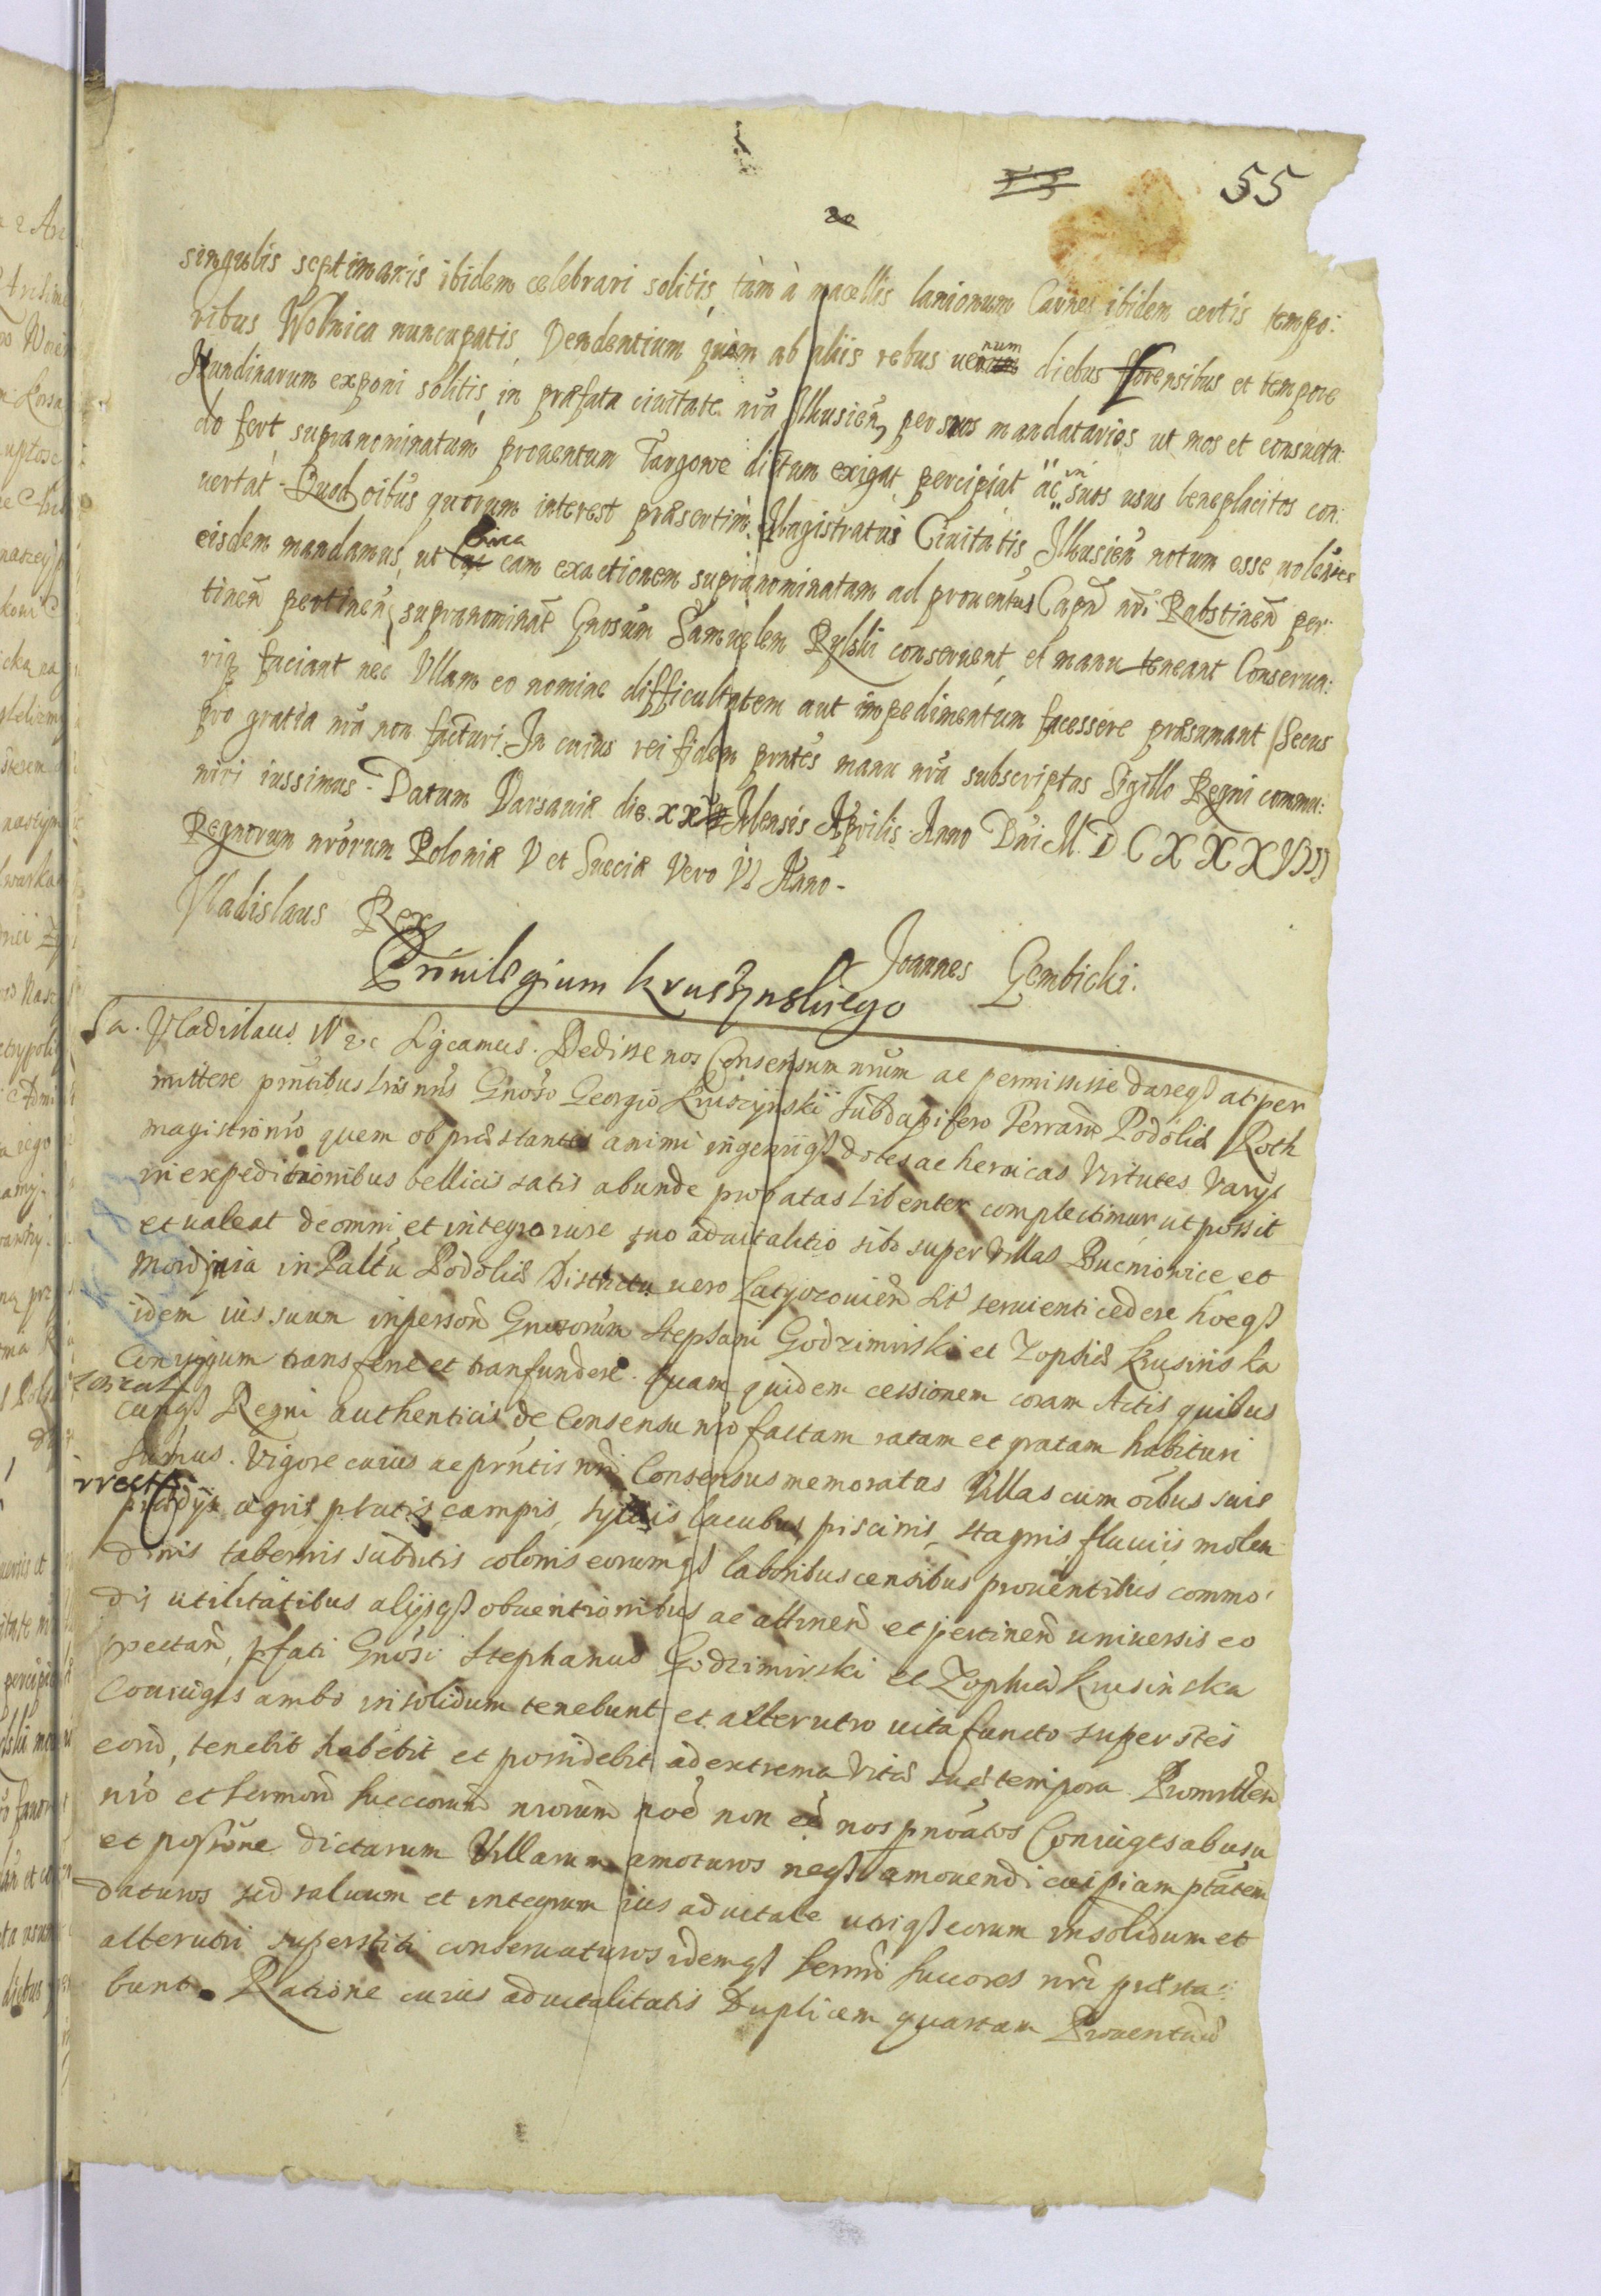 55
singulis septimanis ibidem celebrari solitis, tàm à macellis lanionum Carnes ibidem certis tempo:
ribus Wolnica nuncupatis, Vendentium quàm ab aliis rebus uenum diebus forensibus et tempore
Nundinarum exponi solitis, in præfata ciuitate nrã Ilkusien, per suos mandatarios ut mos et consueta:
do fert supranominatum prouentum Targowe dictum exigat, percipiat ac in suos usus beneplacitos con:
uertat. Quod oibus quorum interest præsertim Magistratui Ciuitatis Ilkusien notum esse uolentes
eisdem mandamus, ut circa eam exactionem supranominatam ad prouentus Capn nri Rabstinen per:
tinen pertinen, supranominat Gnosum Samuelem Rylski conseruent, et manu teneant Conserua:
riq faciant nec Ullam eo nomine difficultatem aut impedimentum facessere præsumant Secus
pro gratia nrã non facturi. In cuius rei fidem prntes manu nrã subscriptas Sigillo Regni commu:
niri iussimus. Datum Varsauiæ die XX Mensis Aprilis Anno Dni M.DCXXXVIII
Regnorum nrorum Poloniæ V et Sueciæ Vero VI Anno.
Vladislaus Rex
Joannes Gembicki.
Priuilegium Kruszynskiego
Vladislaus IV &c Sgcamus. Dedisse nos Consensum nrum ac permississe dareqz at per
mittere prntibus Lris nris Gnoso Georgio Kruszynskii Subdapifero Terrarum Podoliæ Roth
magistro nro quem ob præstantes animi ingeniiqz dotes ac heroicas Virtutes Varijs
in expeditionibus bellicis satis abunde probatas Libenter complectimur, ut possit
et ualeat de omni et integro iure suo aduitalitio sibi super Villas Bucniowice et
in Paltu Podoliæ Districtu uero seruienti cedere hocqz
idem ius suum in person Gnosorum Stephani Godzimirski et Zophiæ Krusinska
Coniugum transferre et tranfundere. Quam quidem cessionem coram Actis quibus
cunqz Regni authenticis de Consensu nro factam ratam et gratam habituri
sumus. Vigore cuius ac prntis nri Consensus memoratas Villas cum oibus suis
prædijs agris pratis campis, syluis lacubus piscinis, stagnis fluuiis molen
dinis tabernis subditis colonis eorumqz laboribus censibus prouentibus commo
dis utilitatibus alijsqz obuentionibus ac attinen et pertinen uniuersis eo
pectan, pfati Gnosi Stephanus Godzimirski et Zophia Krusinska
Coniuges ambo in solidum tenebunt et alterutro uita functo superstes
eorum, tenebit habebit et possidebit ad extrema Vitæ suæ tempora. Promitten
nro et sermorum succorum nrorum noe non eē nos pnoatos Coniuges ab usu
et possione dictarum Villarum amoturos neqz amouendi cuipiam ptatem
daturos sed saluum et integrum ius aduitale utriqz eorum in solidum et
alterutri superstiti conseruaturos idemqz sermi succores nri præsta:
bunt. Ratione cuius aduitalitatis Duplicem quartam Prouentuum